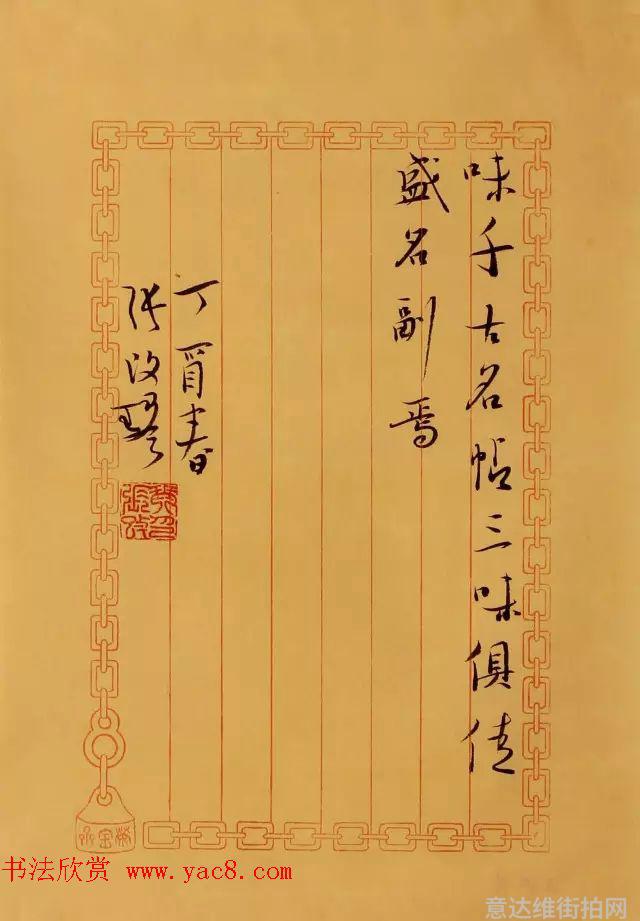 味千古名帖三味俱佳
盛名副焉
丁酉春
张改琴
书法欣赏 www.yac8.com
意达维街拍网